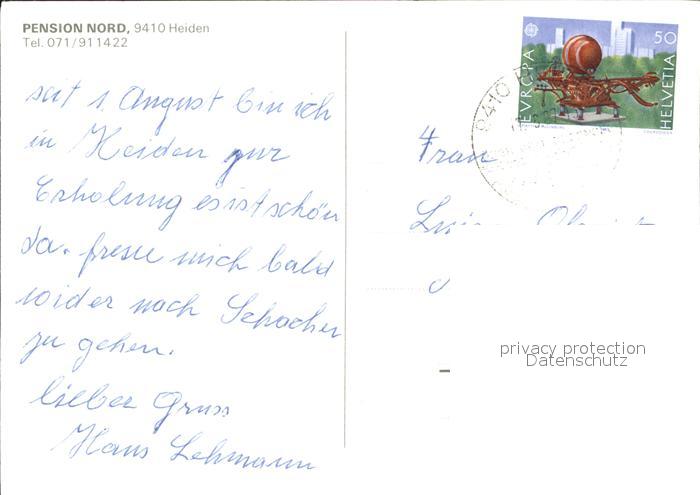 PENSION NORD, 9410 Heiden
Tel. 071/911422
seit 1. August bin ich
in Heiden zur
Erholung es ist schön
da. freue mich bald
wider nach Schachen
zu gehen.
lieber Gruss
Hans Lehmann
EVROPA
50
HELVETIA
9410
Frau
privacy protection
Datenschutz